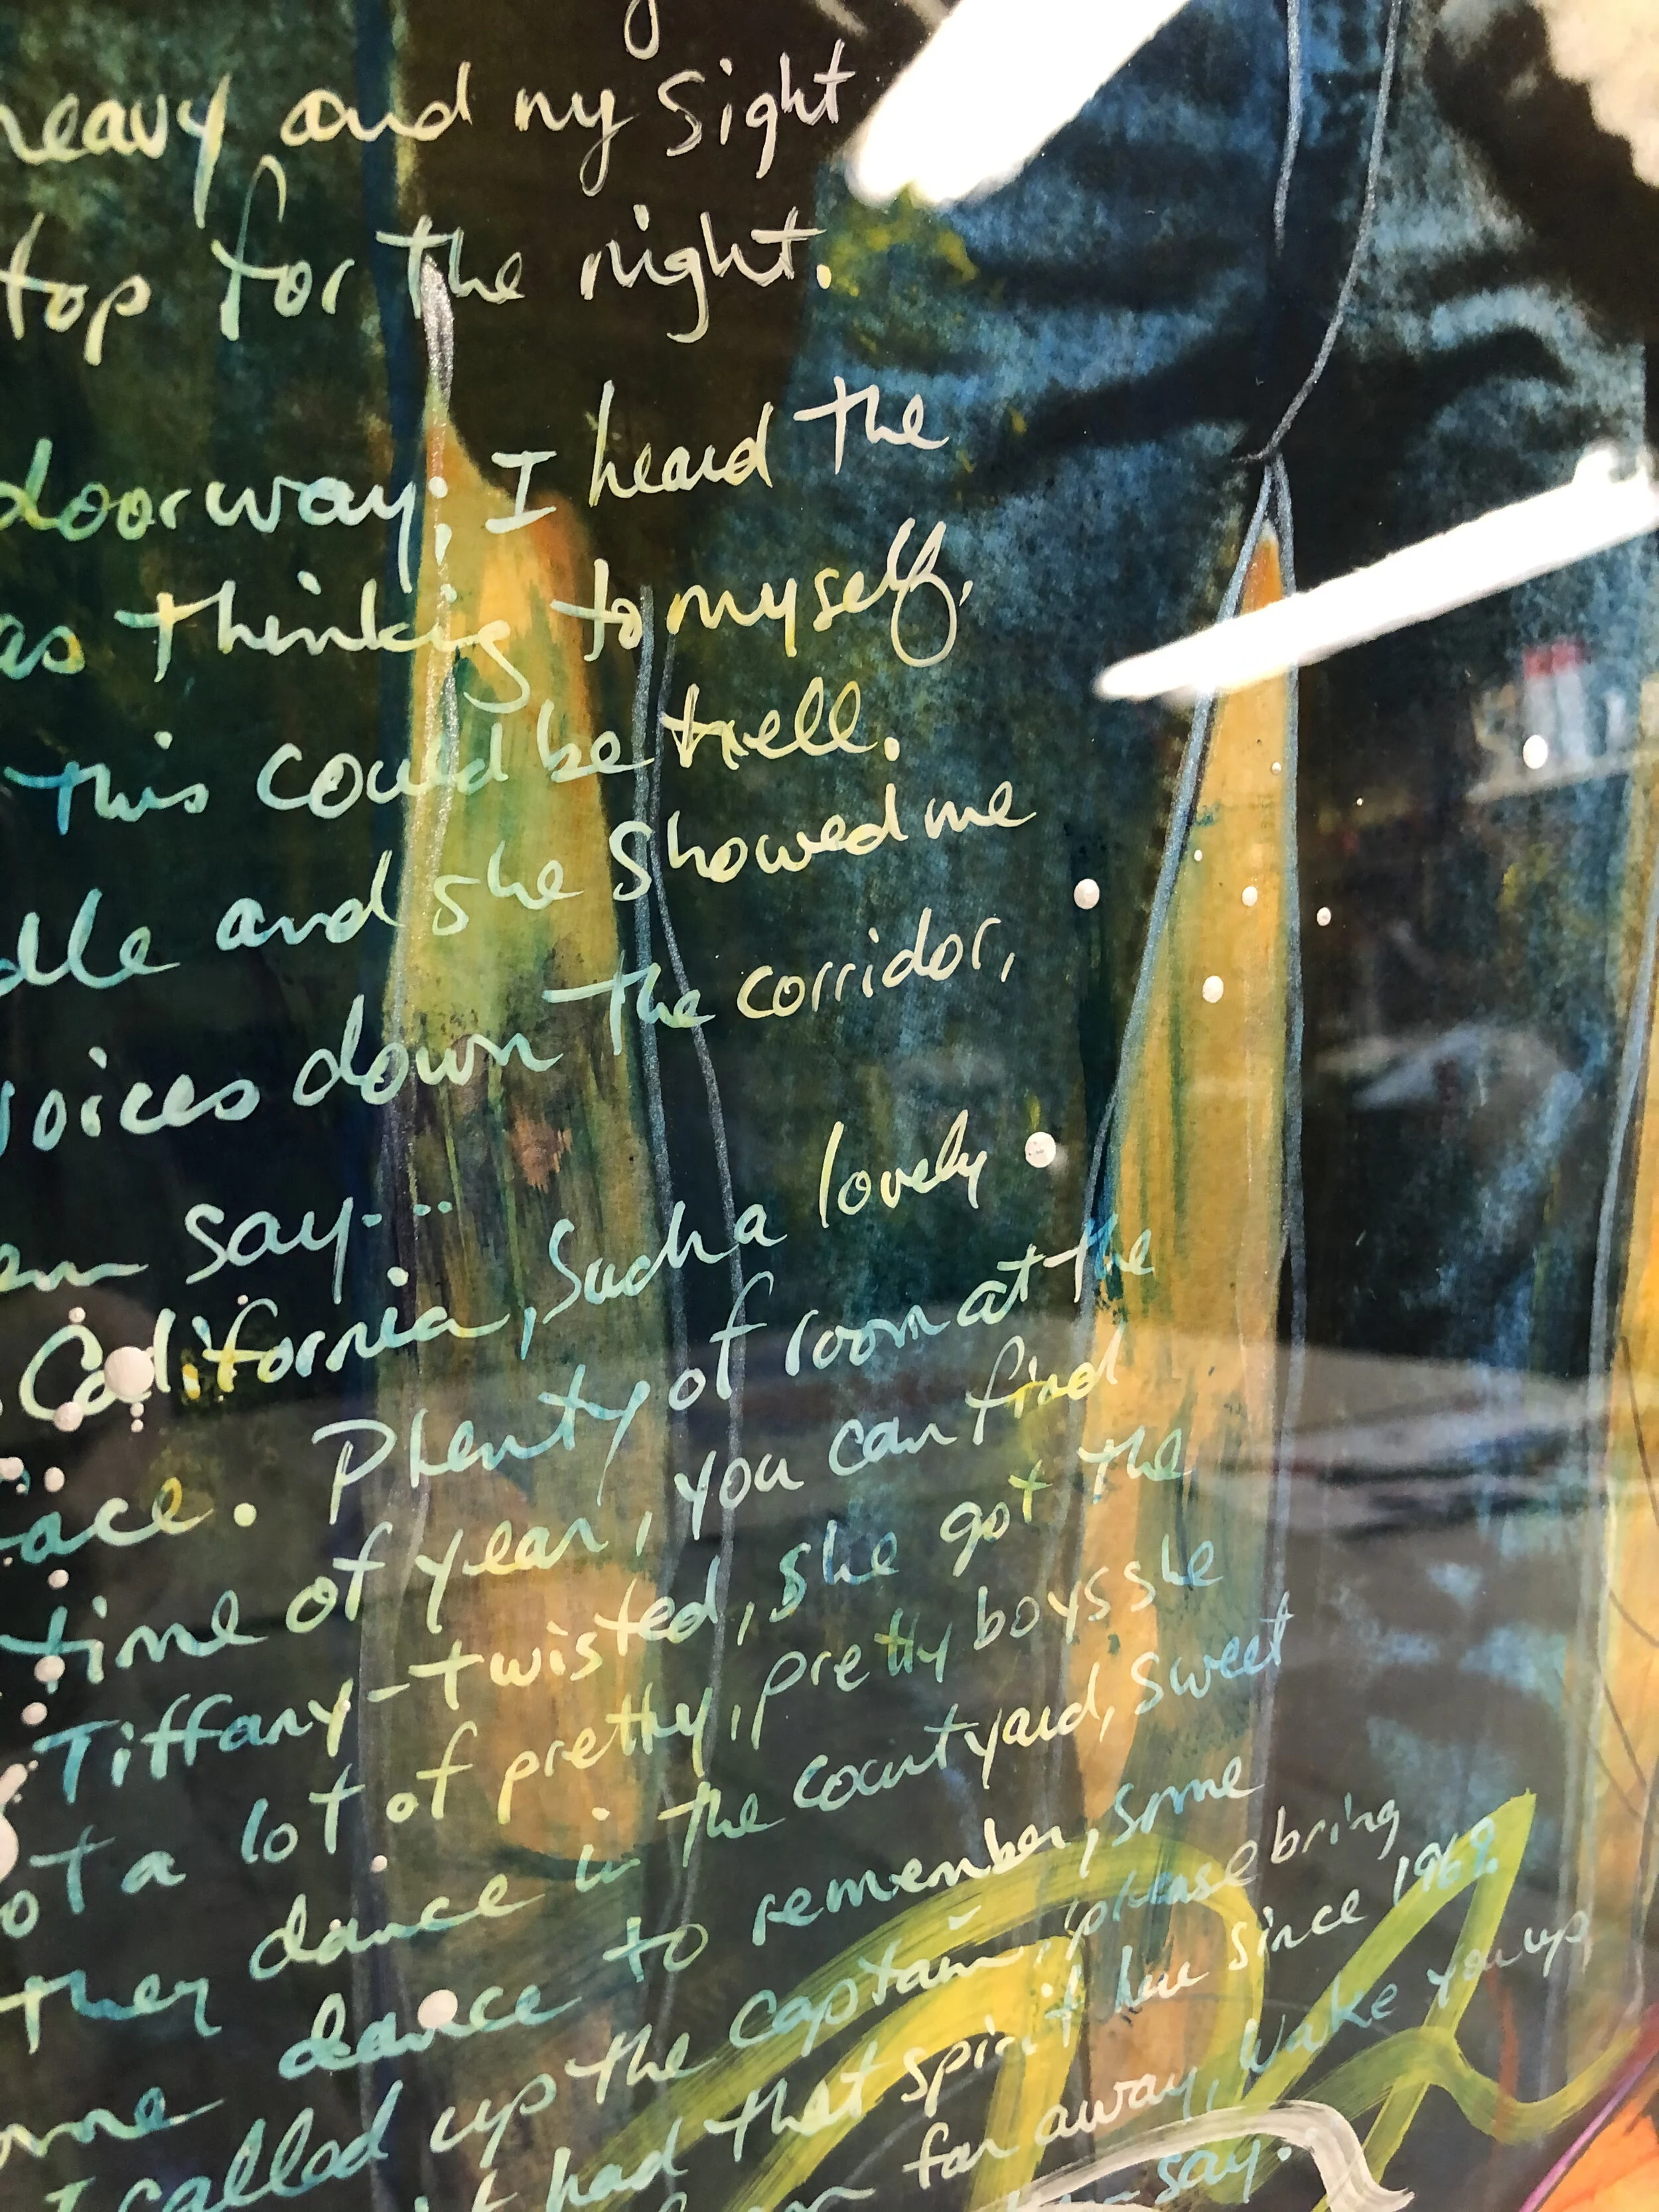 heavy and my sight
top for the night.
doorway; I heard the
as thinking to myself,
this could be
dle and she showed me
voices down the corridor,
em say...
California, Such a lovely
ace. Plenty of room at the
time of year, you can find
Tiffany-twisted, she got the
ot a lot of pretty, pretty boys she
they dance in the courtyard, sweet
ome dance to remember, some
I called up the captain, 'please bring
had that spirit here since 1969.
far away, Wake you up
say...